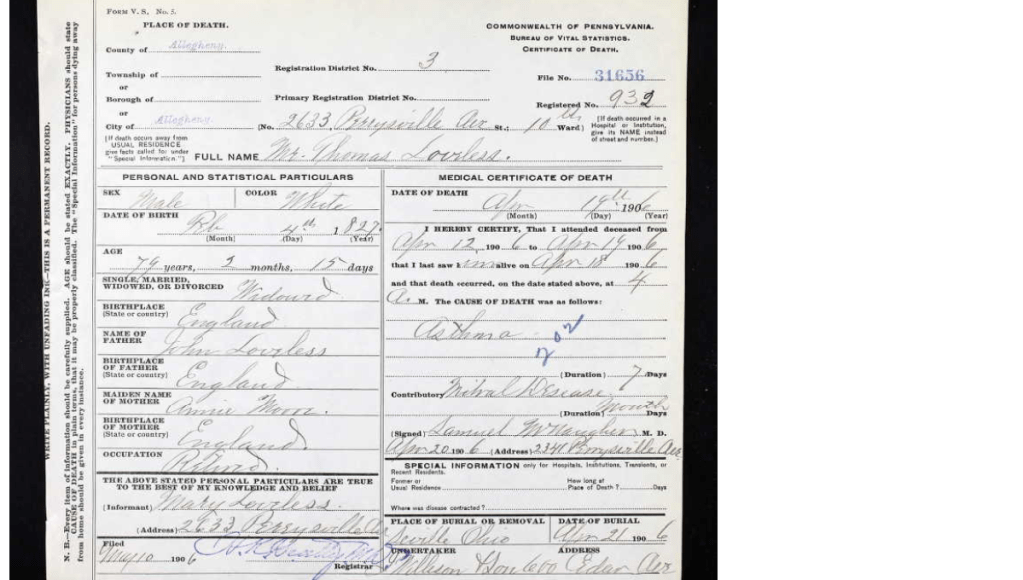 FORM V. S. No. 5.
PLACE OF DEATH.
County of Allegheny.
Township of
or
Borough of
or
City of Allegheny.
[If death occurs away from USUAL RESIDENCE give facts called for under "Special Information."]
COMMONWEALTH OF PENNSYLVANIA.
BUREAU OF VITAL STATISTICS.
CERTIFICATE OF DEATH.
Registration District No. 3
File No. 31656
Primary Registration District No.
Registered No. 932
(No. 2633 Perrysville Ave St.; 10th Ward)
[If death occurred in a Hospital or Institution, give its NAME instead of street and number.]
FULL NAME Mr. Thomas Loveless.
PERSONAL AND STATISTICAL PARTICULARS
SEX Male
COLOR White
DATE OF BIRTH
Feb 4th 1827
(Month) (Day) (Year)
AGE
79 years, 2 months, 15 days
SINGLE, MARRIED, WIDOWED, OR DIVORCED Widowed
BIRTHPLACE
(State or country) England
NAME OF FATHER John Loveless
BIRTHPLACE OF FATHER
(State or country) England
MAIDEN NAME OF MOTHER Annie Moore.
BIRTHPLACE OF MOTHER
(State or country) England.
OCCUPATION Retired.
THE ABOVE STATED PERSONAL PARTICULARS ARE TRUE
TO THE BEST OF MY KNOWLEDGE AND BELIEF
(Informant) Mary Loveless.
(Address) 2633 Perrysville Av
Filed
May 10 1906
Registrar
MEDICAL CERTIFICATE OF DEATH
DATE OF DEATH
Apr 19th 1906
(Month) (Day) (Year)
I HEREBY CERTIFY, That I attended deceased from
Apr 12, 1906 to Apr 19 1906,
that I last saw him alive on Apr 18 1906
and that death occurred, on the date stated above, at 4
a. M. The CAUSE OF DEATH was as follows:
Asthma
202
(Duration) 7 Days
Contributory Mitral Disease
(Duration) Month Days
(Signed) Samuel McNaugher M. D.
Apr 20 1906 (Address) 2341 Perrysville Av
SPECIAL INFORMATION only for Hospitals, Institutions, Transients, or Recent Residents.
Former or Usual Residence
How long at Place of Death? Days
Where was disease contracted?
PLACE OF BURIAL OR REMOVAL
Seville Ohio
DATE OF BURIAL
Apr 21 1906
UNDERTAKER
ADDRESS
WRITE PLAINLY, WITH UNFADING INK—THIS IS A PERMANENT RECORD.
N. B.—Every item of information should be carefully supplied. AGE should be stated EXACTLY. PHYSICIANS should state
CAUSE OF DEATH in plain terms, that it may be properly classified. The "Special Information" for persons dying away
from home should be given in every instance.